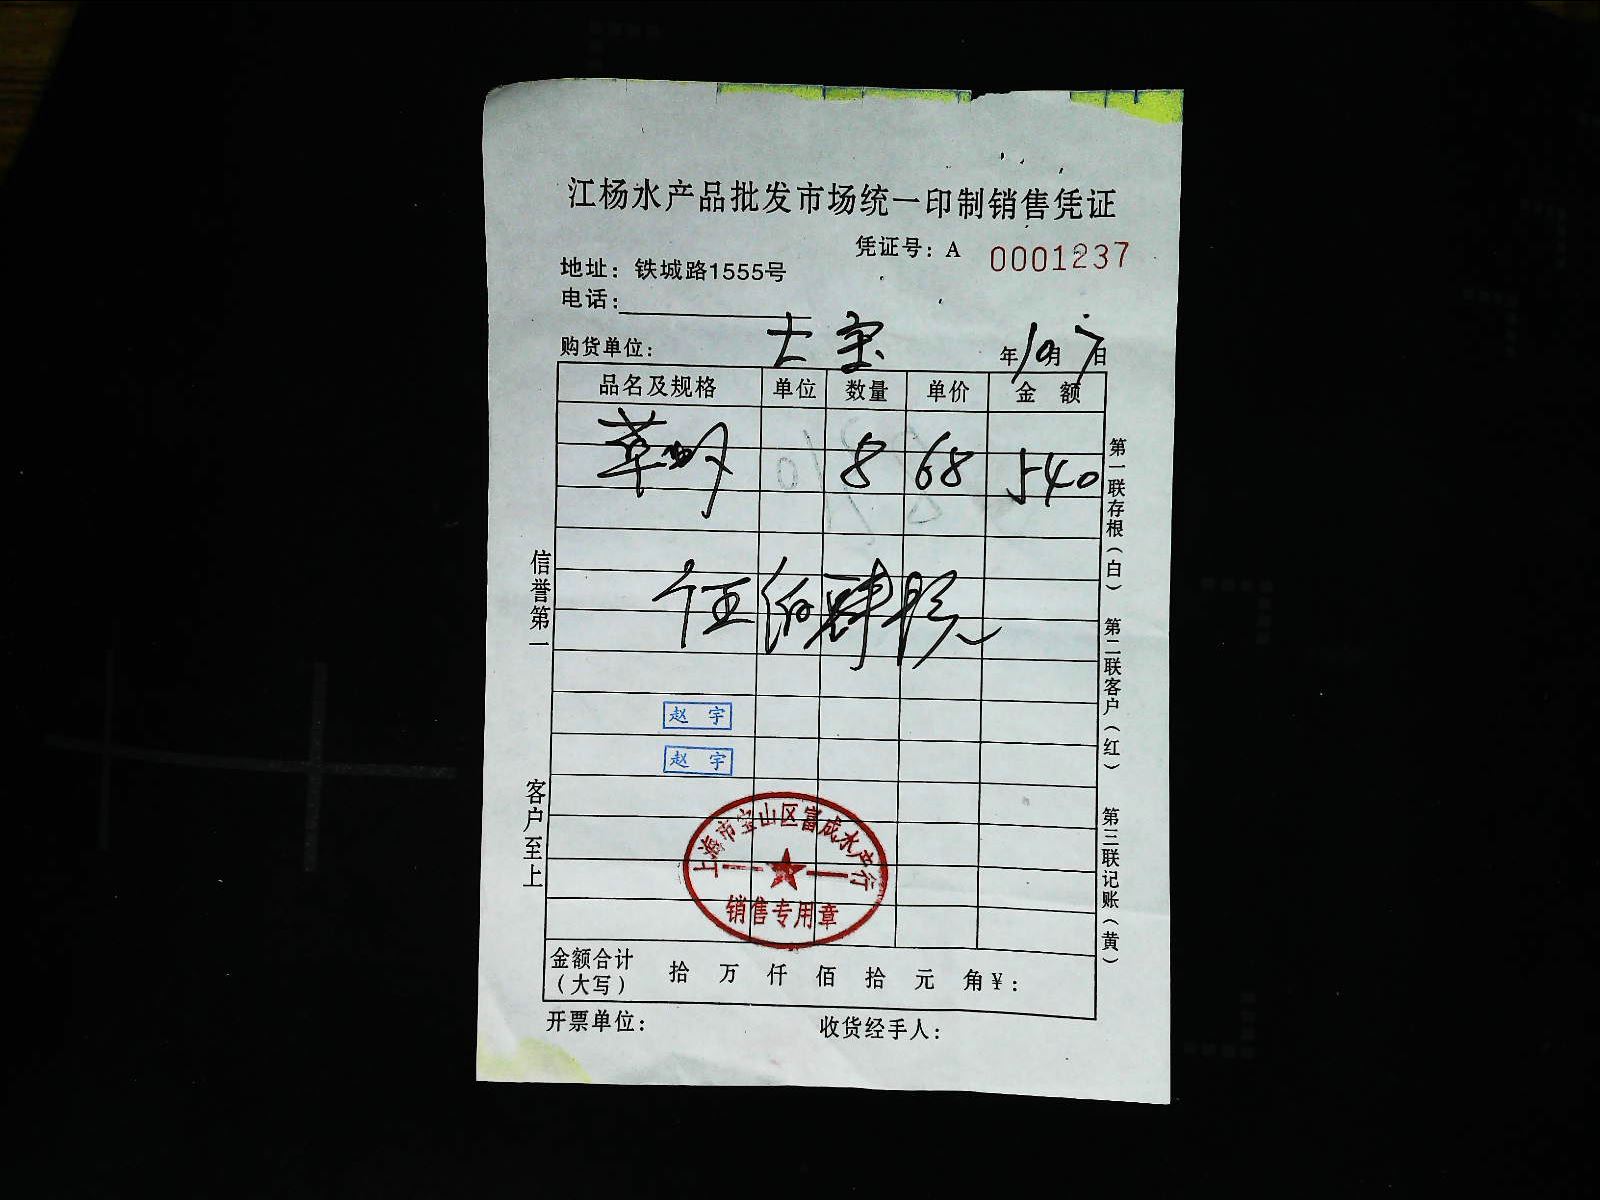 江杨水产品批发市场统一印制销售凭证
凭证号：A 0001237
地址：铁城路1555号
电话：
购货单位： 大宝 年10月7日
品名及规格 单位 数量 单价 金 额
草虾 8 68 540
伍佰肆拾元
赵 宇
赵 宇
上海市宝山区富成水产行
销售专用章
金额合计（大写） 拾 万 仟 佰 拾 元 角￥：
开票单位： 收货经手人：
信誉第一
客户至上
第一联存根（白）
第二联客户（红）
第三联记账（黄）